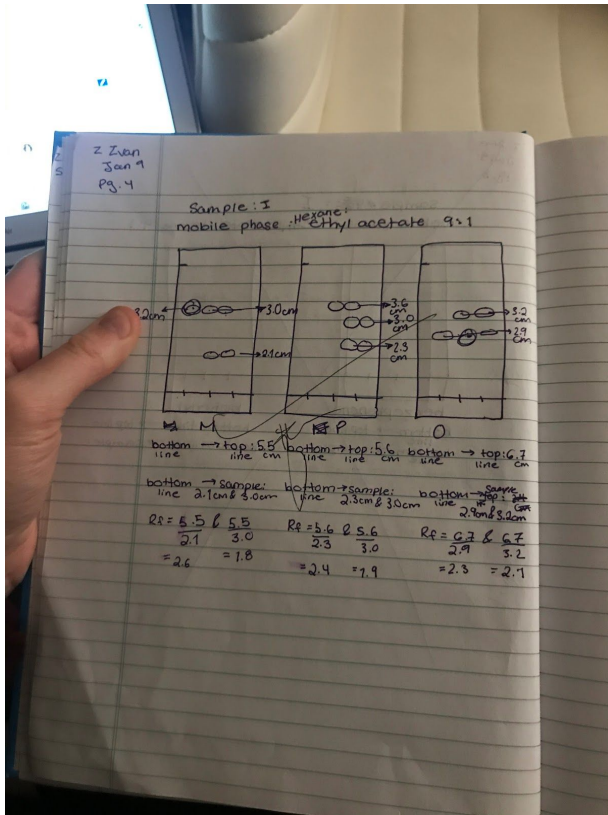 Z Zvan
Jan 9
Pg. 4
Sample: I
mobile phase: Hexane: ethyl acetate 9:1
3.2cm
3.0cm
2.1cm
3.6 cm
3.0 cm
2.3 cm
3.2 cm
2.9 cm
M P O
bottom line → top line: 5.5 cm
bottom line → top line: 5.6 cm
bottom line → top line: 6.7 cm
bottom line → sample: 2.1cm & 3.0cm
bottom line → sample: 2.3cm & 3.0cm
bottom line → sample: 2.9cm & 3.2cm
Rf = 5.5/2.1 & 5.5/3.0
= 2.6 = 1.8
Rf = 5.6/2.3 & 5.6/3.0
= 2.4 = 1.9
Rf = 6.7/2.9 & 6.7/3.2
= 2.3 = 2.1